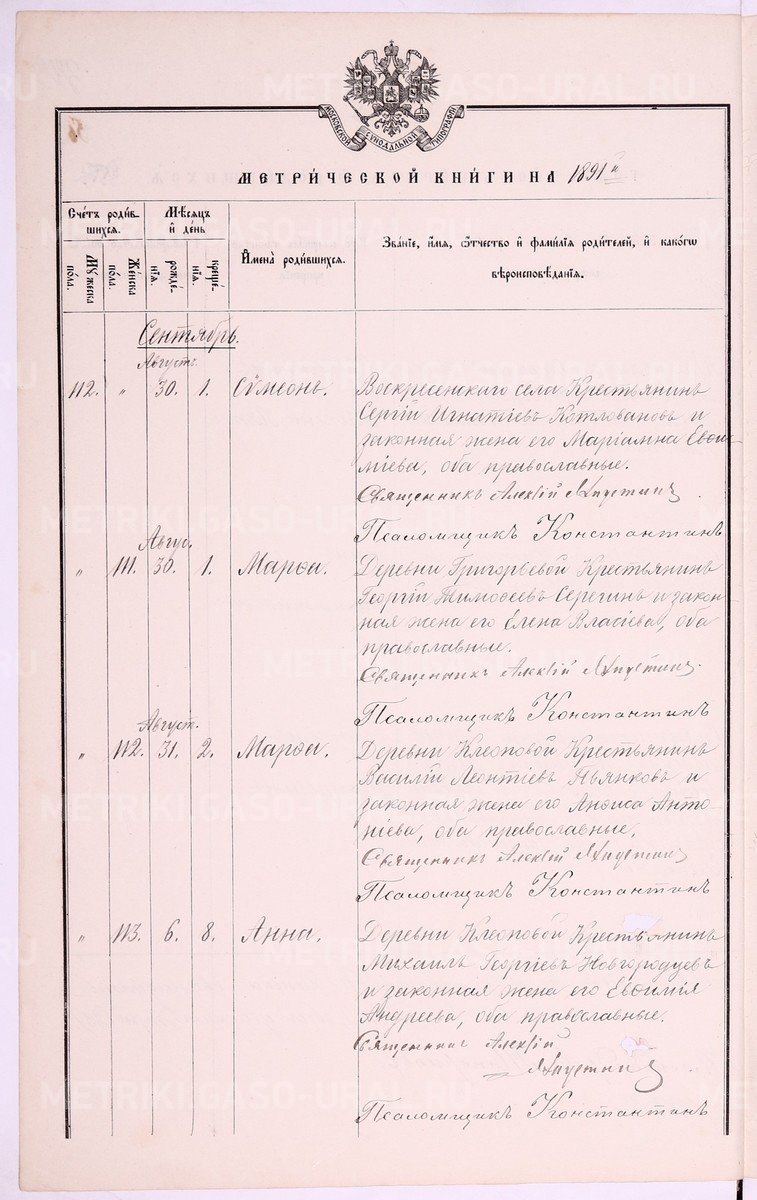 МОСКОВСКОЙ СУНОДАЛЬНОЙ ТИПОГРАФІИ
МЕТРИ́ЧЕСКОЙ КНИ́ГИ НА 1891й
Сче́тъ роди́в-
шихся.
Мѣ́сяцъ
и де́нь
Имена̀ роди́вшихся.
Зва́ніе, и́мя, ѻ́тчество и фами́лія роди́телей, и како́гѡ
вѣроисповѣ́данія.
Му́жеска
по́ла.
Же́нска
по́ла.
рожде́-
нія.
креще́-
нія.
Сентябрь.
Августъ.
112. „ 30. 1. Сѵмеонъ. Воскресенскаго села Крестьянинъ
Сергій Игнатіевъ Котловановъ и
законная жена его Маріамна Евѳи-
міева, оба православные.
Священникъ Алексій
Псаломщикъ Константинъ
Авгус.
„ 111. 30. 1. Марѳа. Деревни Григорьевой Крестьянинъ
Георгій Тимоѳеевъ Серегинъ и закон-
ная жена его Елена Власіева, оба
православные.
Священникъ Алексій
Псаломщикъ Константинъ
Август.
„ 112. 31. 2. Марѳа. Деревни Клеоповой Крестьянинъ
Василій Леонтіевъ Пьянковъ и
законная жена его Анѳиса Анто-
ніева, оба православные.
Священникъ Алексій
Псаломщикъ Константинъ
„ 113. 6. 8. Анна. Деревни Клеоповой Крестьянинъ
Михаилъ Георгіевъ Новгородцевъ
и законная жена его Евѳимія
Андреева, оба православные.
Священникъ Алексій
Псаломщикъ Константинъ
METRIKI.GASO-URAL.RU